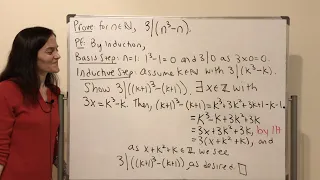 Prove: for n∈ℕ, 3|(n³-n).
Pf: By Induction,
Basis Step: n=1: 1³-1=0 and 3|0 as 3×0=0.
Inductive Step: Assume k∈ℕ with 3|(k³-k).
Show 3|((k+1)³-(k+1)). ∃x∈ℤ with
3x=k³-k. Then, (k+1)³-(k+1)=k³+3k²+3k+1-k-1
=k³-k+3k²+3k
=3x+3k²+3k, by IH
=3(x+k²+k), and
as x+k²+k∈ℤ, we see
3|((k+1)³-(k+1)) as desired. □